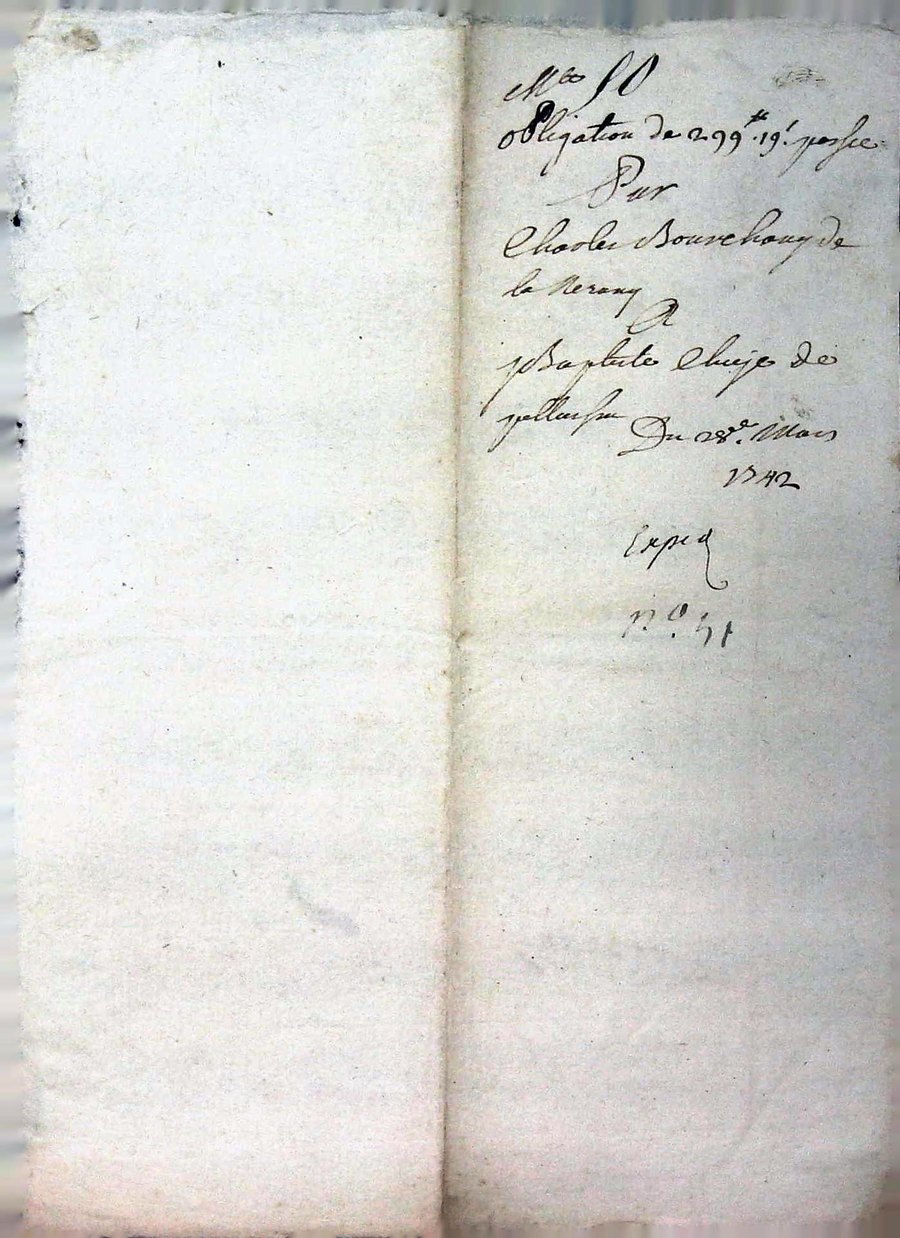 obligation de 299ᵗᵗ. 19ˢ. passée
Par
Charles Bourchany de
la
A
jBaptiste Chuje de
pellussin
Du 28ᵉ. Mars
1742
Exped
n.o 51